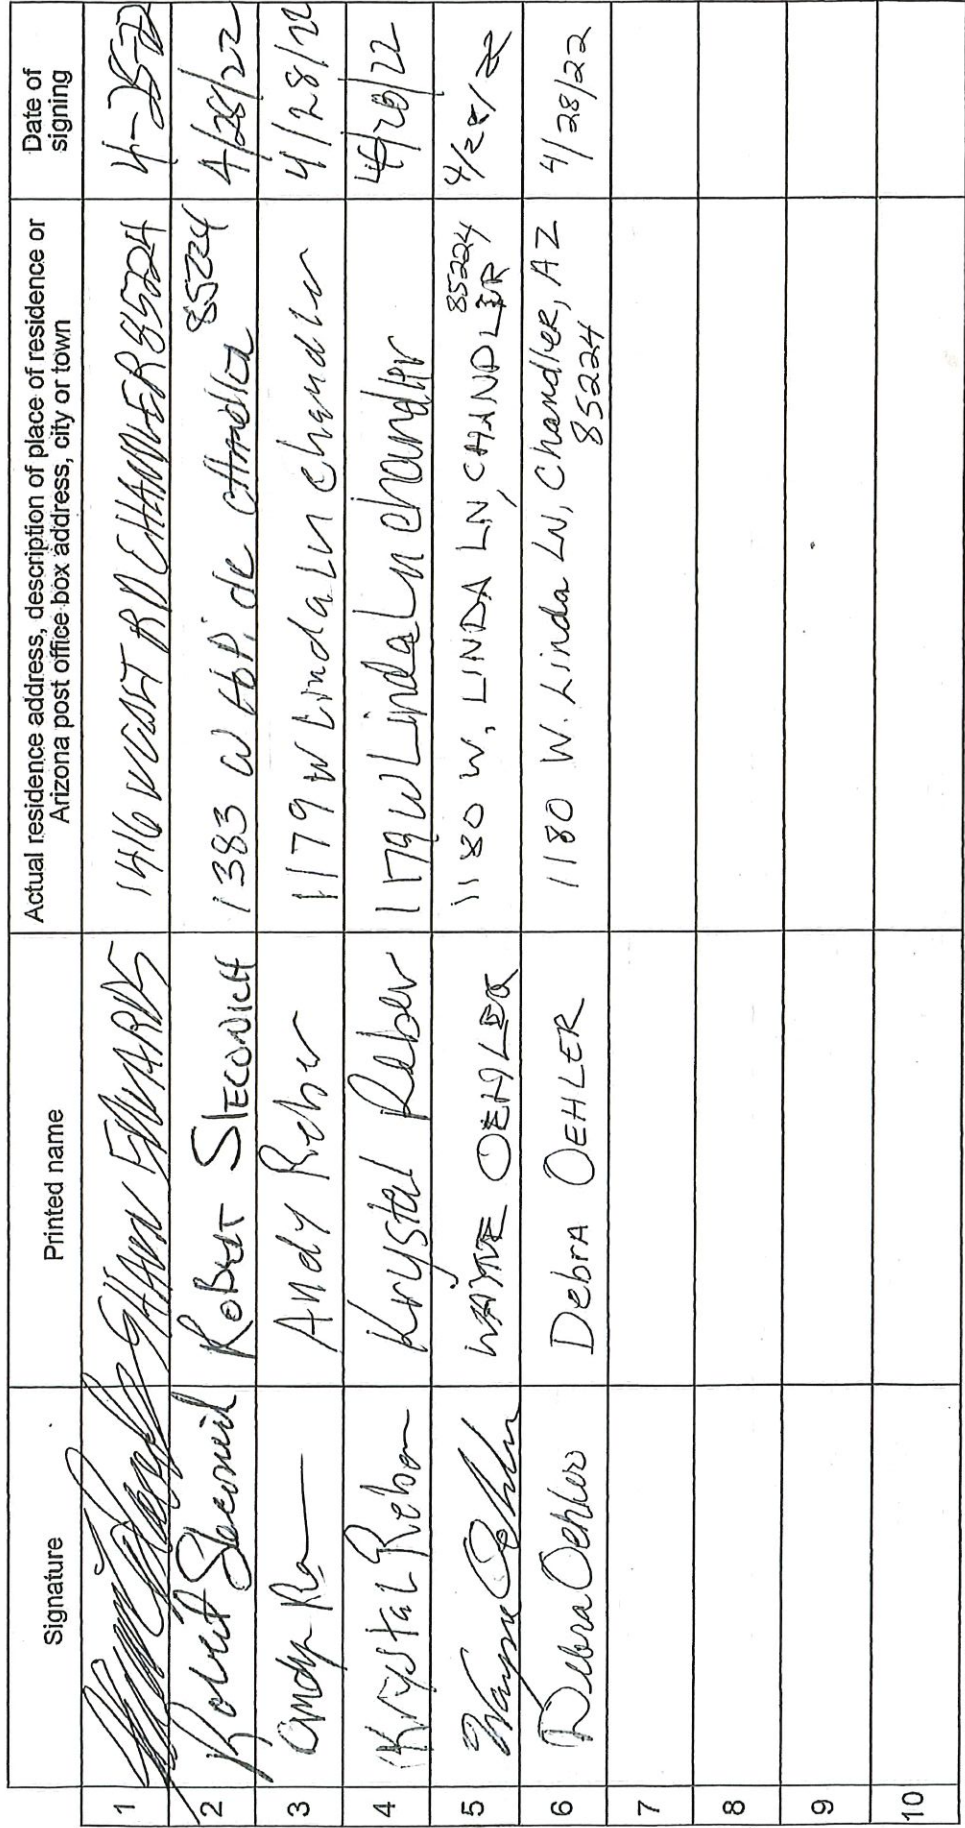 Signature Printed name Actual residence address, description of place of residence or Arizona post office box address, city or town Date of signing
1 SHAWN EDWARDS CHANDLER 85224
2 Robert ROBERT 1383 W 85224 4/28/22
3 Andy Andy Reber 1179 W Linda Ln Chandler 4/28/22
4 Krystal Reber Krystal Reber 1179 W Linda Ln Chandler /22
5 Wayne Oehler WAYNE OEHLER 1180 W, LINDA LN, CHANDLER 85224 4/28/22
6 Debra Oehler DebrA OEHLER 1180 W. Linda LN, Chandler, AZ 85224 4/28/22
7
8
9
10